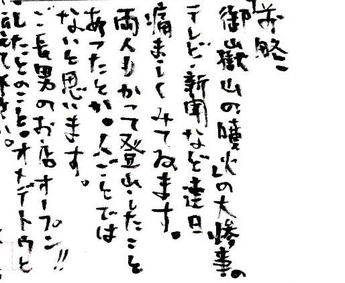 前略
御嶽山の噴火の大惨事。
テレビ・新聞など連日
痛ましくみてゐます。
両人もかつて登山したこと
あつたとか。人ごとでは
ないと思います。
ご長男のお店オープン!!
したとのこと。オメデトウと
伝えて下さい。